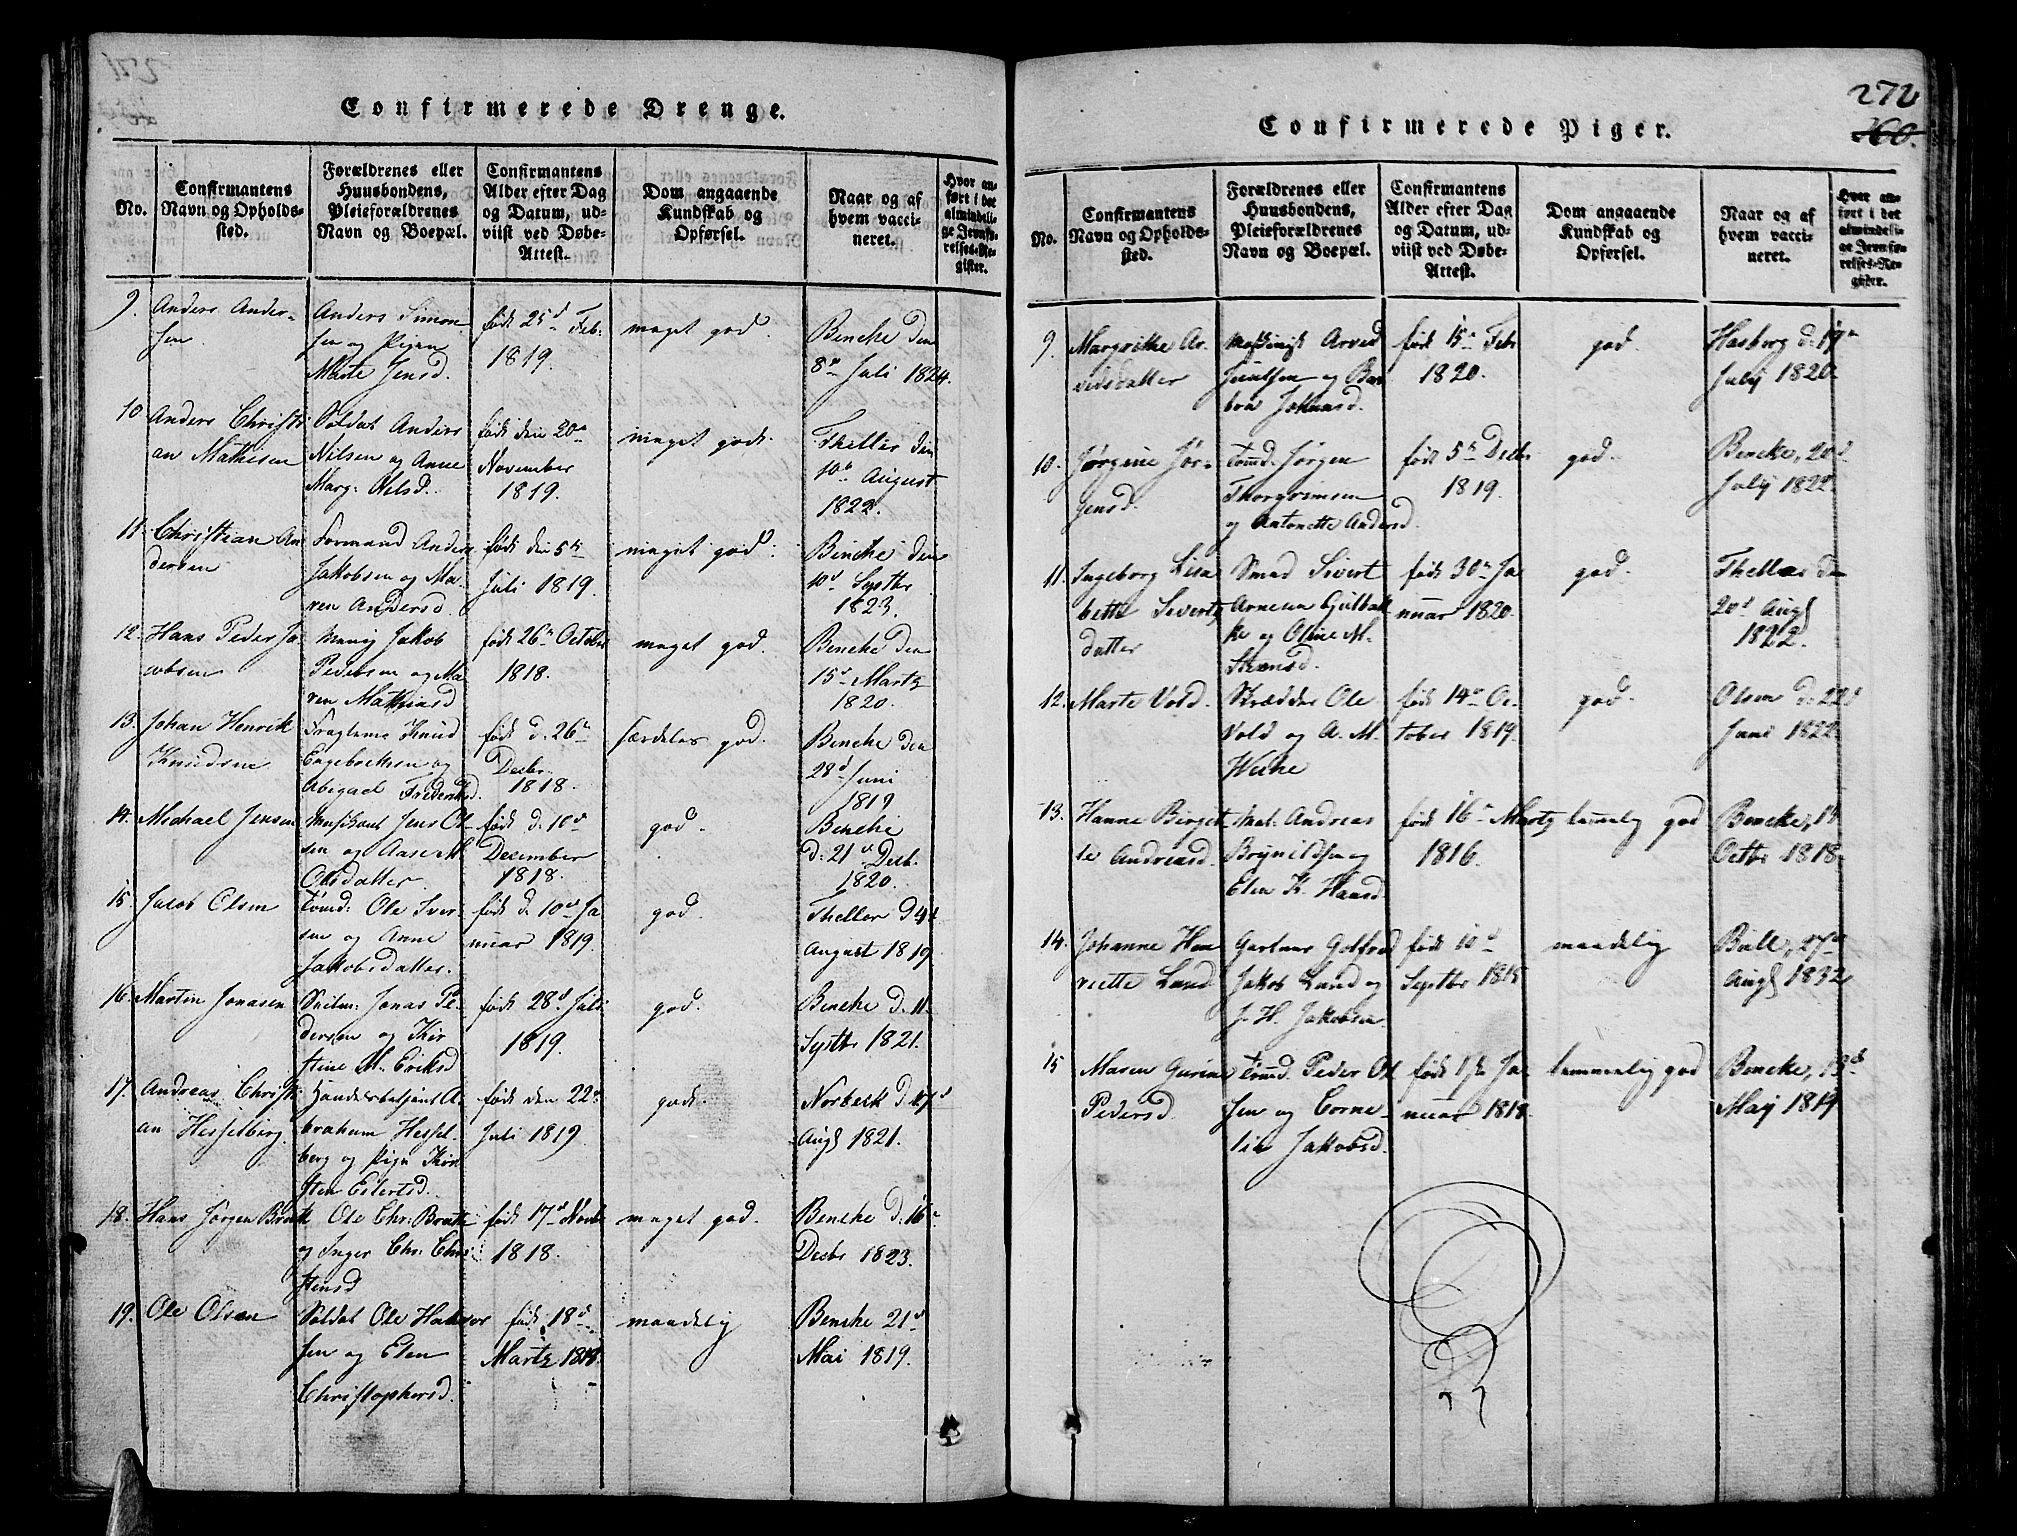 Confirmerede Drenge.
No.
Confirmantens
Navn og Opholds-
sted.
Forældrenes eller
Huusbondens,
Pleieforældrenes
Navn og Boepæl.
Confirmantens
Alder efter Dag
og Datum, ud-
viist ved Døbe-
Attest.
Dom angaaende
Kundskab og
Opførsel.
Naar og af
hvem vacci-
neret.
Hvor an-
ført i det
almindeli-
ge Jevnfø-
relses-Re-
gister.
9.
Anders Ander-
sen
Anders Simon
sen og Pigen
Marte Jensd.
født 25d Feb:
1819.
meget god.
Benche den
8de Juli 1824.
10
Anders Christi
an Mathisen
Soldat Anders
Nilsen og Anne
Marg: Nilsd.
født den 30te
November
1819.
meget god.
Theller den
10de August
1822.
11.
Christian An
dersen
Formand Anders
Jakobsen og Ma-
ren Andersd.
født den 5te
Juli 1819.
meget god.
Benche den
10d Septbr
1823.
12.
Hans Peder Ja
cobsen
Jakob
Pedersen og Ma
ren Mathiasd
født 26de October
1818.
meget god.
Benche den
15de Martz
1820.
13.
Johan Henrik
Knudsen
Knud
Engebretsen og
Abigael Frederiksd.
født d. 26de
Decbr.
1818.
særdeles god.
Benche den
28d Juni
1819
14.
Michael Jensen
Musikant Jens Ol-
sen og Aase M
Olsdatter.
født d. 10de
December
1818.
god.
Benche
d: 21de Decb.
1820.
15.
Jacob Olsen
Tømd: Ole Iver-
sen og Anne
Jakobsdatter.
født d. 10de Ja
nuar 1819.
god.
Theller d.
August 1819.
16.
Martin Jonasen
Jonas Pe-
dersen og Kir
stine M. Eriksd
født 28d Juli
1819.
god.
Benche d. 11
Septbr 1821.
17.
Andreas Christi
an Hesselberg.
Handelsbetjent A-
braham Hessel-
berg og Pige Kir
sten Eilertsd.
født den 22de
Juli 1819
god.
Norbeck d. 17d
Aug 1821.
18.
Hans Jørgen
Ole Chr:
og Inger Chr: Chri
stensd
født 17d Novbr
1818.
meget god.
Benche d. 16de
Decbr 1823.
19.
Ole Olsen
Soldat Ole Halvor
sen og Elen
Christophersd.
født 18d
Martz 1819.
maadelig
Benche 21de
Mai 1819.
272
260.
Confirmerede Piger.
No.
Confirmantens
Navn og Opholds-
sted.
Forældrenes eller
Huusbondens,
Pleieforældrenes
Navn og Boepæl.
Confirmantens
Alder efter Dag
og Datum, ud-
viist ved Døbe-
Attest.
Dom angaaende
Kundskab og
Opførsel.
Naar og af
hvem vacci-
neret.
Hvor an-
ført i det
almindeli-
ge Jevnfø-
relses-Re-
gister.
9.
Margrethe Ar
vedsdatter
Arved
Juulsen og Bar
bra Johansd.
født 15de Febr
1820.
god.
Hasberg d. 19de
July 1820.
10.
Jørgine Jør-
gensd.
Tømd. Jørgen
Thorgrimsen
og Antonette Andersd.
født 5te Decbr
1819.
god.
Bencke, 20d
July 1822.
11.
Ingeborg Lisa
bette Siverts
datter
Smed Sivert
Arnesen Gulbak
ke og Oline M.
Steensd.
født 30te Ja
nuar 1820.
god.
Theller den
20d Aug
1822.
12.
Marte Vold.
Skrædder Ole
Vold og A. M.
født 14de Oc
tober 1819.
god.
Olsen d. 22d
Juni 1822.
13.
Hanne Birgit-
te Andreasd.
Mat. Andreas
Brynildsen og
Elen K. Hansd.
født 16de Martz
1816.
temmelig god
Bencke, 15
Octbr 1818.
14.
Johanne Hen
riette Lund.
Gartner Gotfred
Jakob Lund og
J. H. Jakobsen.
født 10d
Septbr 1818
maadelig
Bull, 27de
Aug 1832
15
Maren Gurine
Pedersd.
Tømd. Peder Ol
sen og Corne-
lia Jakobsd.
født 1ste Ja
nuar 1818.
temmelig god
Bencke, 13de
May 1819